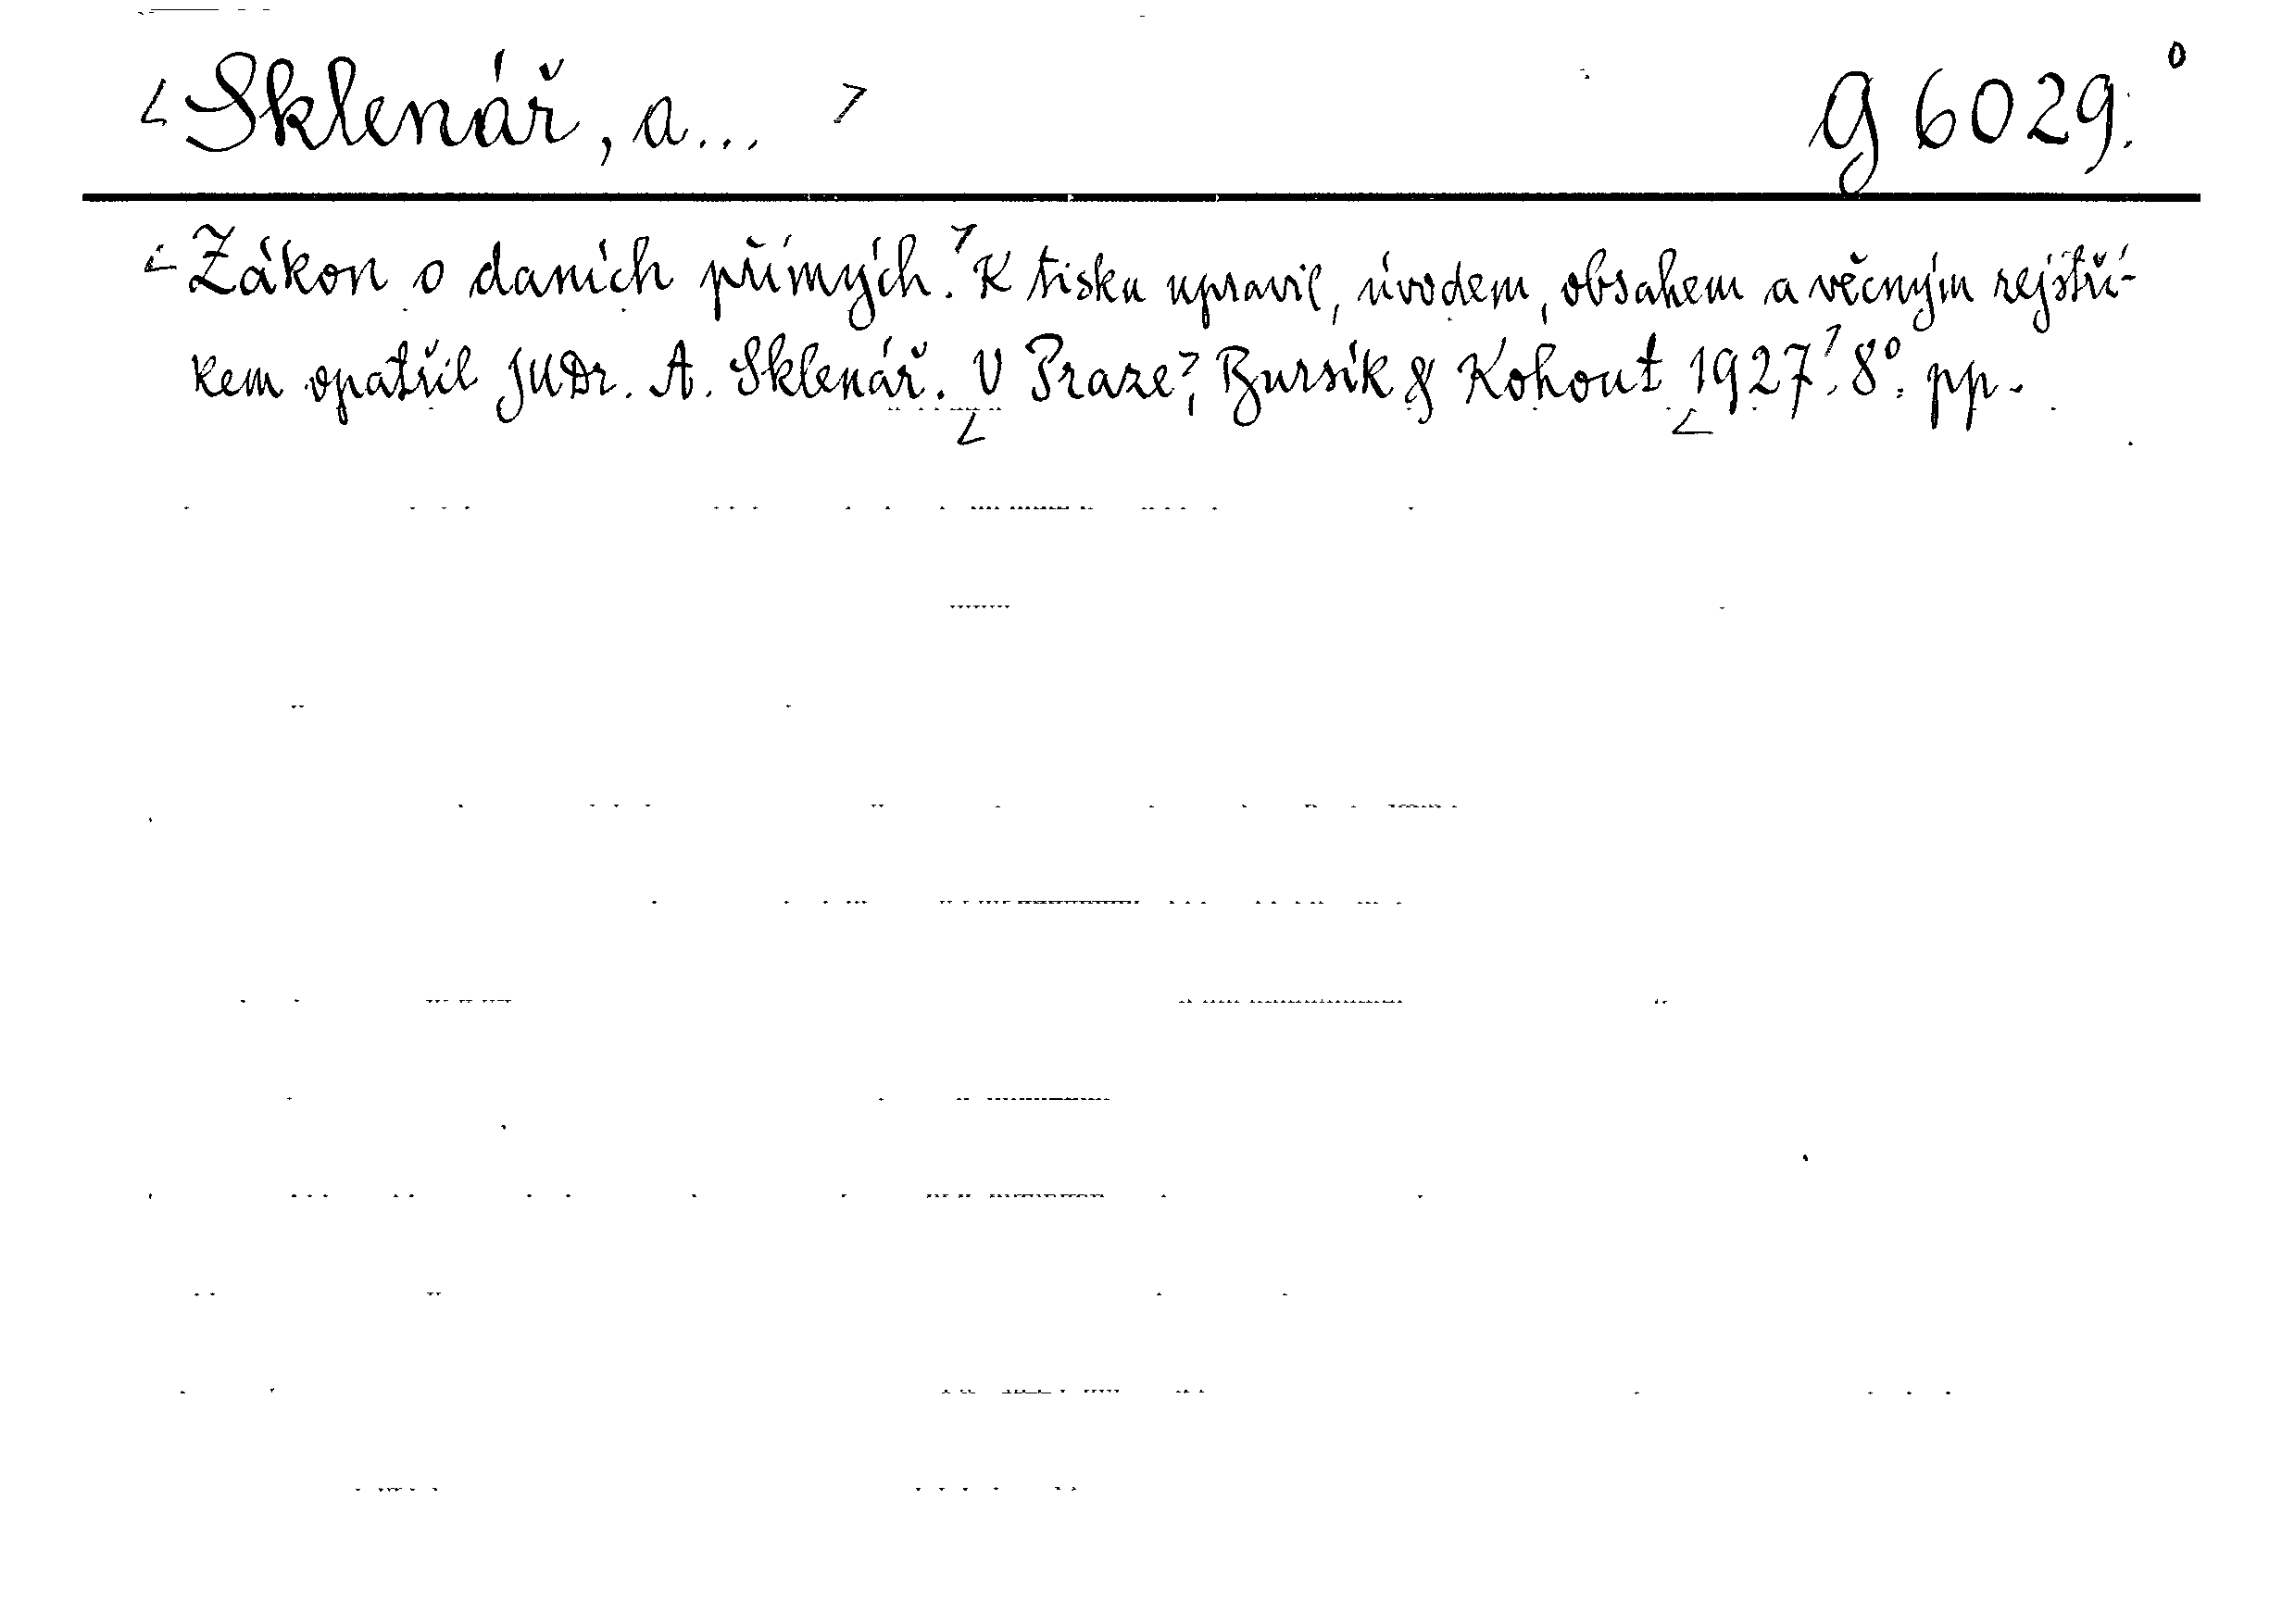 <Sklenář, a...> G 6029.°
<Zákon o daních přímých.> K tisku upravil, úvodem, obsahem a věcným rejstří-
kem opatřil JUDr. A. Sklenář. <V Praze>, Bursík & Kohout <1927.> 8°. pp.